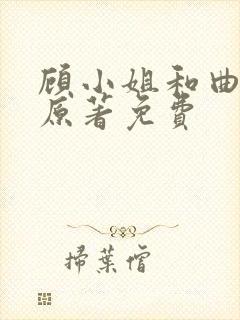 顾小姐和曲
原著免費
掃葉僧